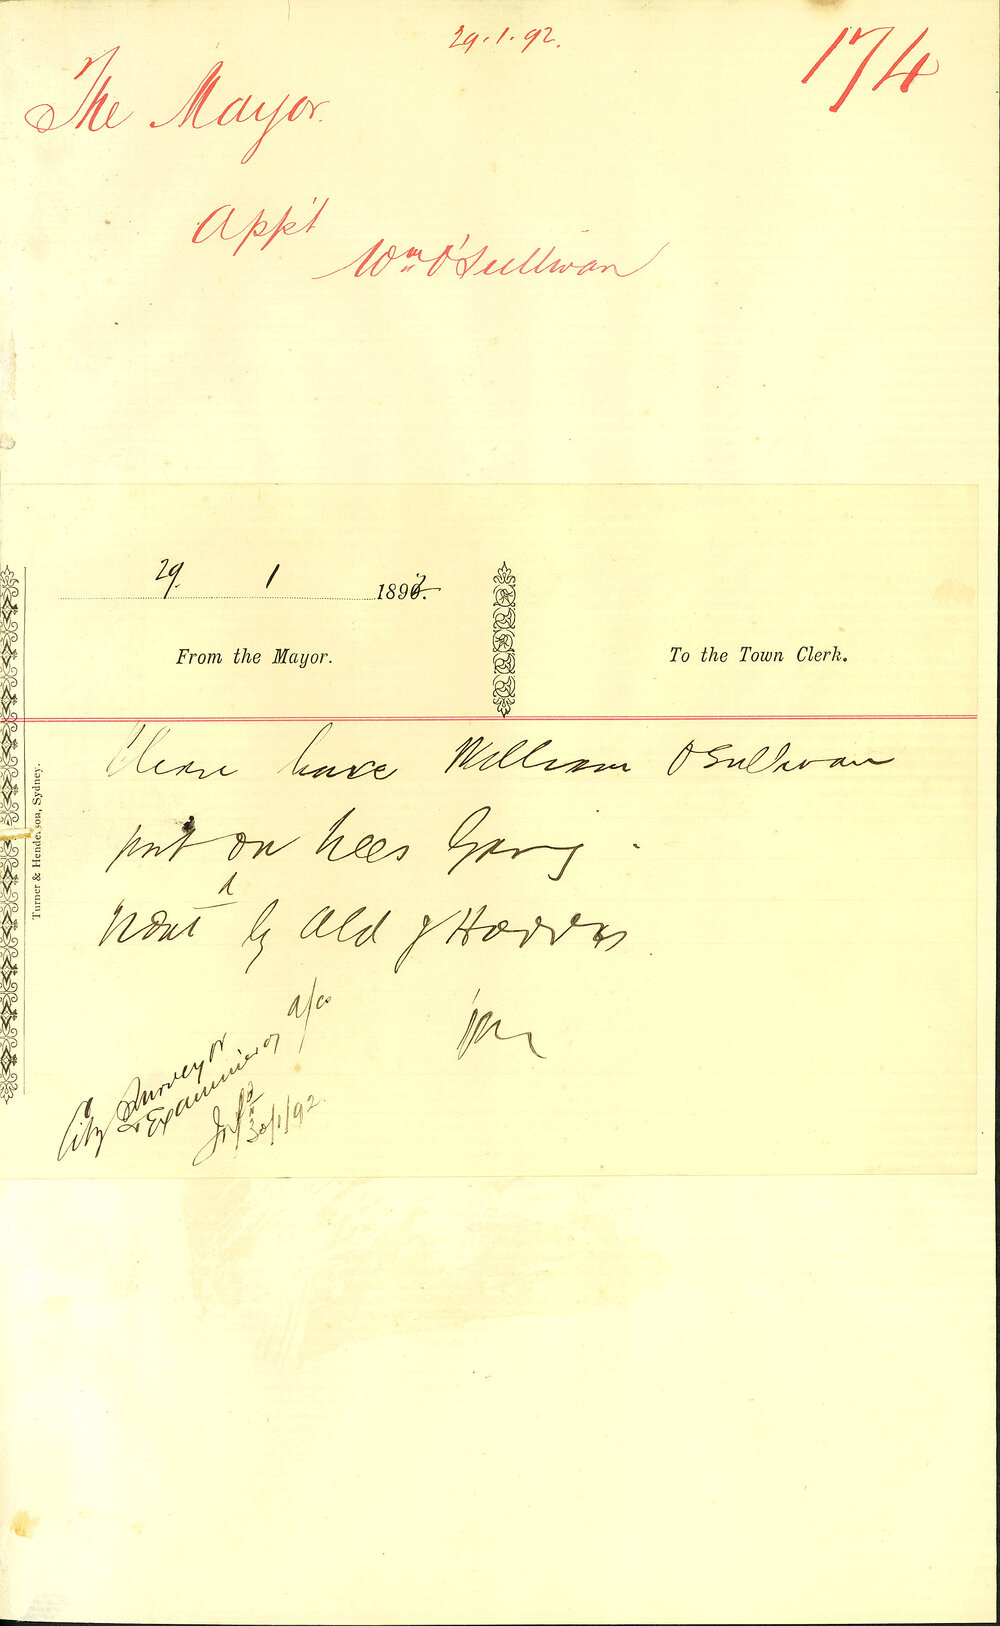 29.1.92.
174
The Mayor.
App't
Wm O'Sullivan
29. 1 1892.
From the Mayor.
To the Town Clerk.
Please have William O'Sullivan
put on Lees Gang.
by Ald
City Surveyor
& Examiner of a/cs
30/1/92.
Turner & Henderson, Sydney.